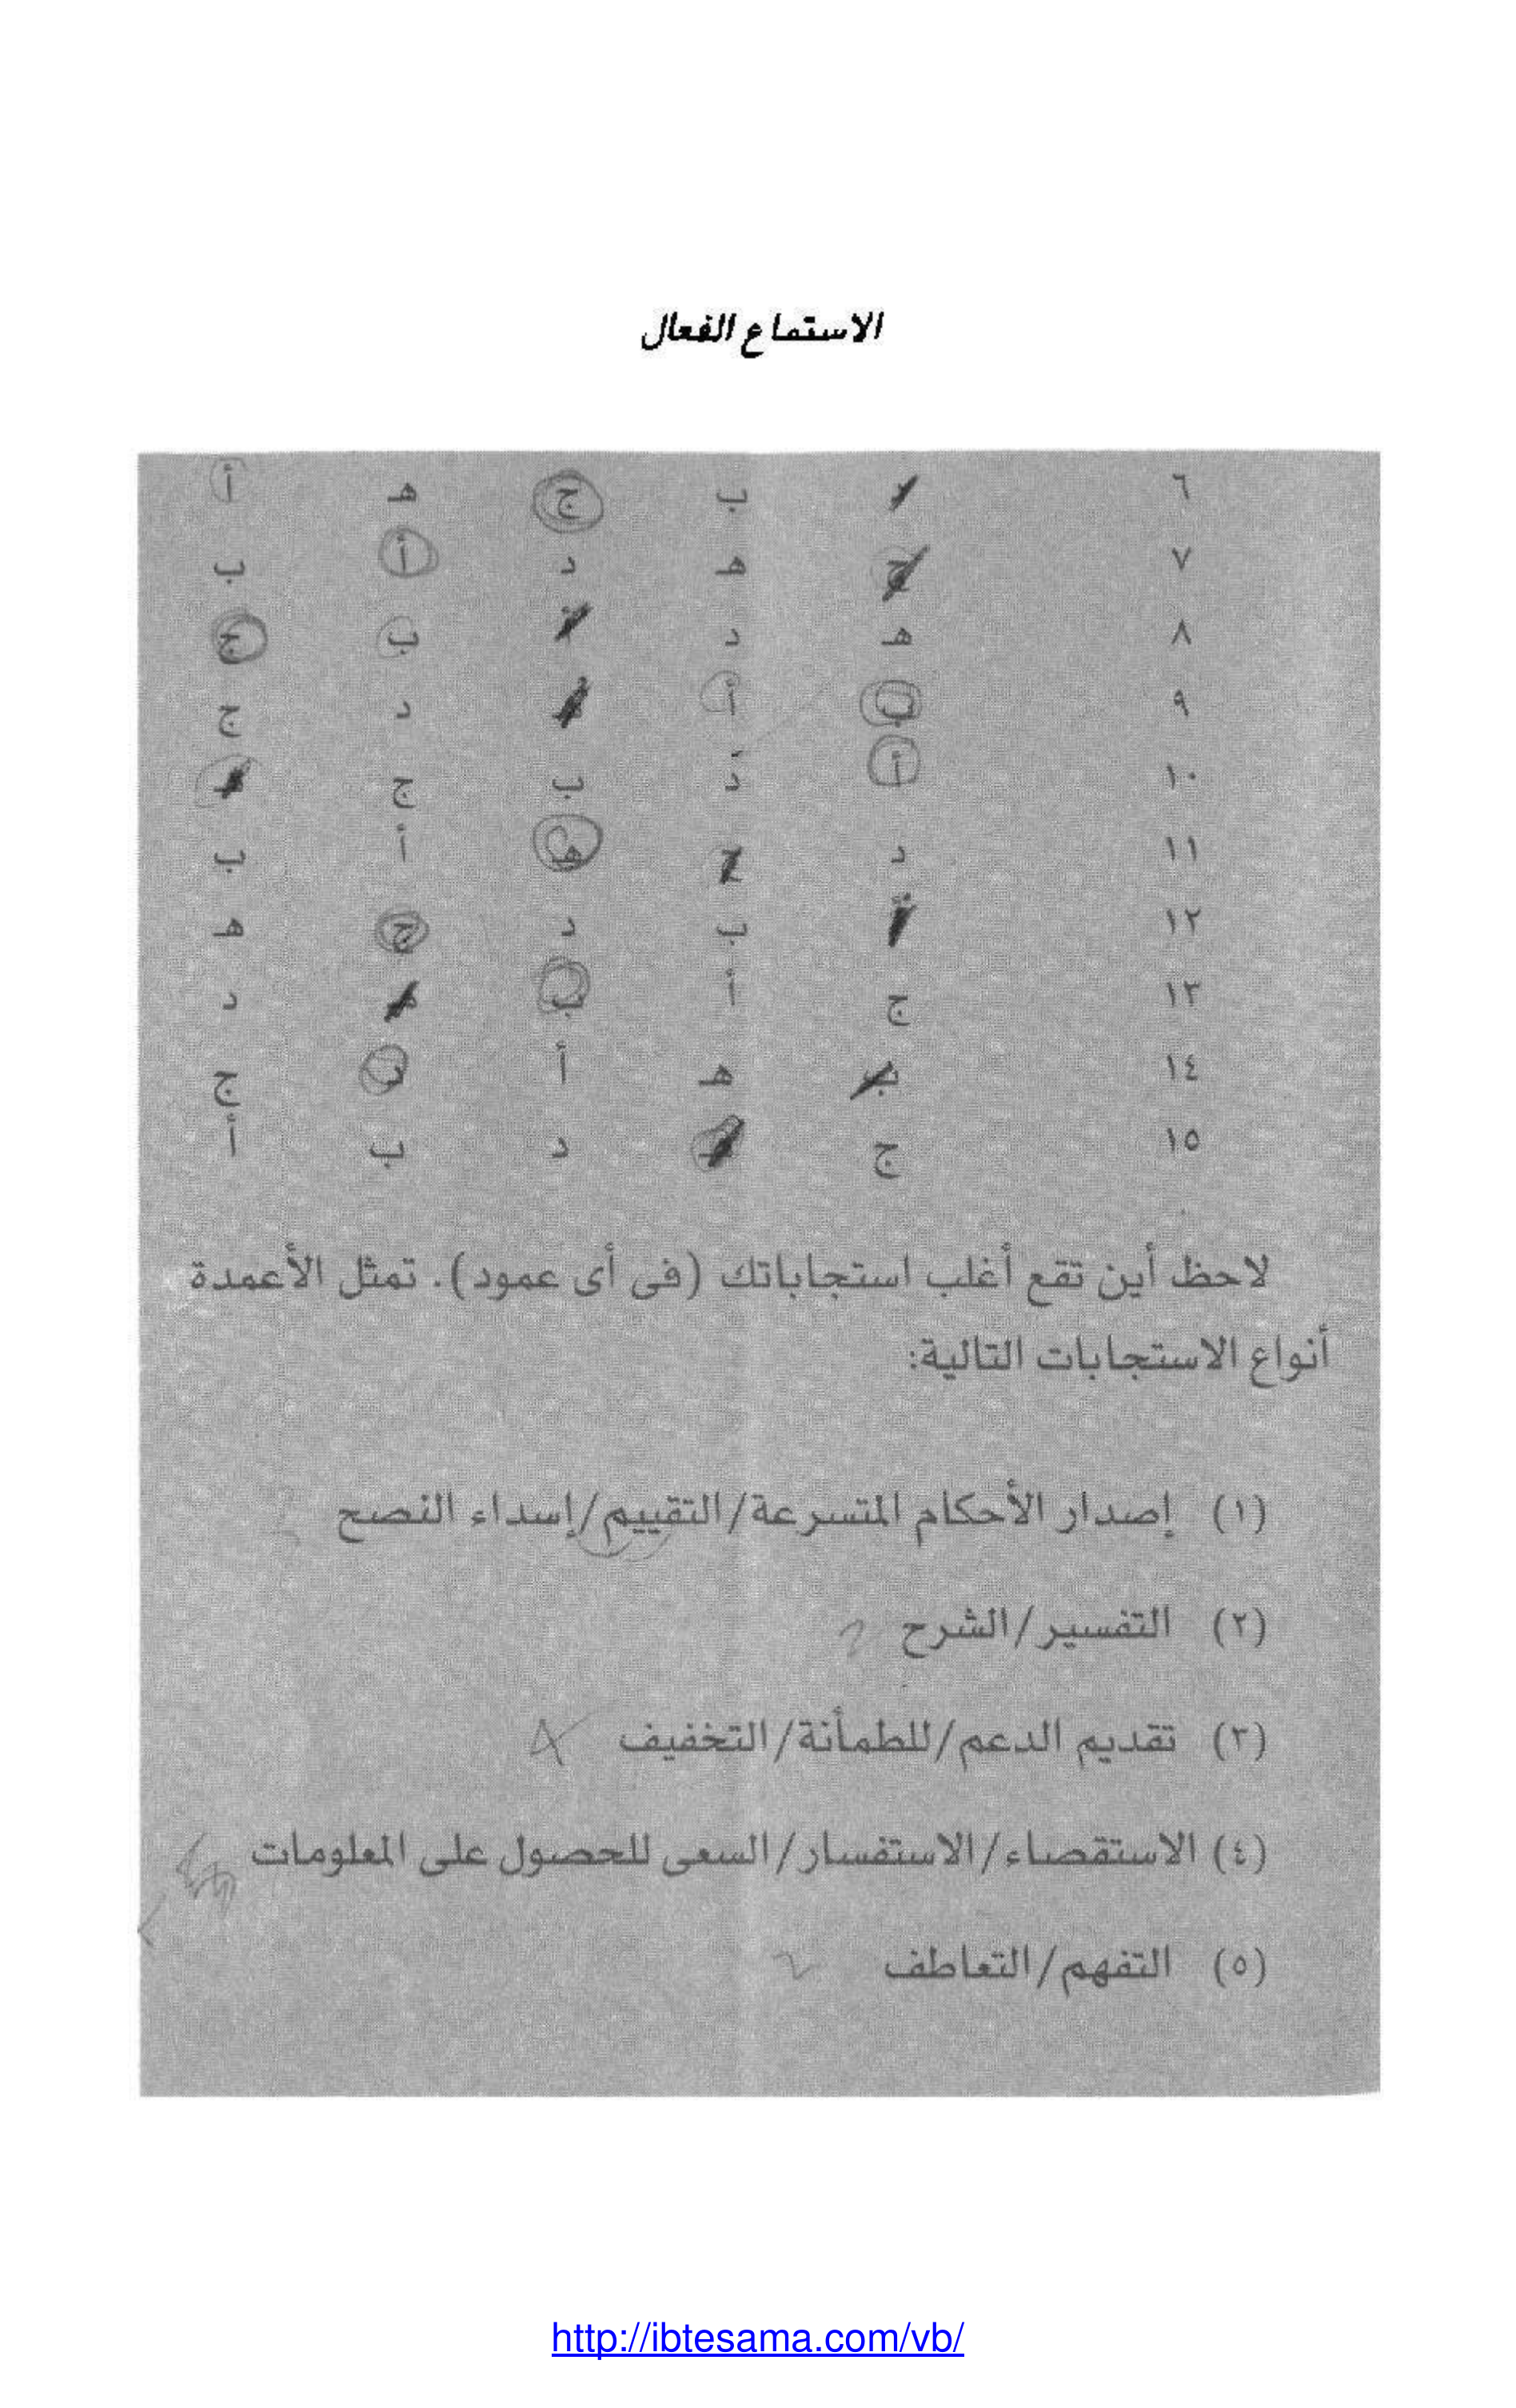 الاستماع الفعال
٦ ب ج هـ أ
٧ ج هـ د أ ب
٨ هـ د أ ب ج
٩ ب أ د ج
١٠ أ د ب ج
١١ د ج هـ أ ب
١٢ أ ب د ج هـ
١٣ ج أ ب هـ د
١٤ ب هـ أ د ج
١٥ ج هـ د ب أ
لاحظ أين تقع أغلب استجاباتك (فى أى عمود). تمثل الأعمدة
أنواع الاستجابات التالية:
(١) إصدار الأحكام المتسرعة/التقييم/إسداء النصح
(٢) التفسير/الشرح
(٣) تقديم الدعم/للطمأنة/التخفيف
(٤) الاستقصاء/الاستفسار/السعى للحصول على المعلومات
(٥) التفهم/التعاطف
http://ibtesama.com/vb/